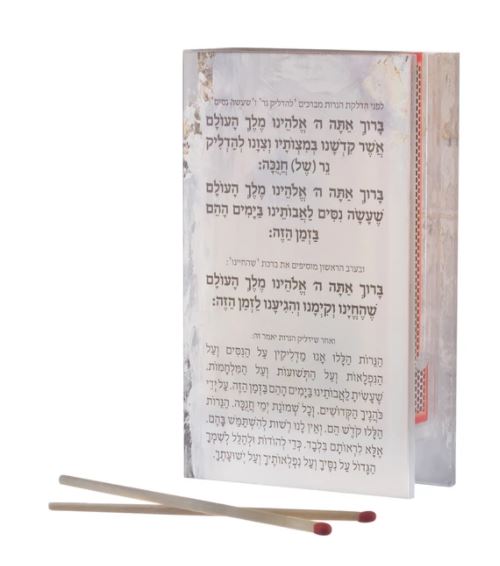 לפני הדלקת הנרות מברכים 'להדליק נר' ו'שעשה נסים'
בָּרוּךְ אַתָּה ה' אֱלֹהֵינוּ מֶלֶךְ הָעוֹלָם
אֲשֶׁר קִדְּשָׁנוּ בְּמִצְוֹתָיו וְצִוָּנוּ לְהַדְלִיק
נֵר (שֶׁל) חֲנֻכָּה:
בָּרוּךְ אַתָּה ה' אֱלֹהֵינוּ מֶלֶךְ הָעוֹלָם
שֶׁעָשָׂה נִסִּים לַאֲבוֹתֵינוּ בַּיָּמִים הָהֵם
בַּזְּמַן הַזֶּה:
ובערב הראשון מוסיפים את ברכת 'שהחיינו':
בָּרוּךְ אַתָּה ה' אֱלֹהֵינוּ מֶלֶךְ הָעוֹלָם
שֶׁהֶחֱיָנוּ וְקִיְּמָנוּ וְהִגִּיעָנוּ לַזְּמַן הַזֶּה:
ואחר שידליק הנרות יאמר זה:
הַנֵּרוֹת הַלָּלוּ אָנוּ מַדְלִיקִין עַל הַנִּסִּים וְעַל
הַנִּפְלָאוֹת וְעַל הַתְּשׁוּעוֹת וְעַל הַמִּלְחָמוֹת.
שֶׁעָשִׂיתָ לַאֲבוֹתֵינוּ בַּיָּמִים הָהֵם בַּזְּמַן הַזֶּה. עַל יְדֵי
כֹּהֲנֶיךָ הַקְּדוֹשִׁים. וְכָל שְׁמוֹנַת יְמֵי חֲנֻכָּה. הַנֵּרוֹת
הַלָּלוּ קֹדֶשׁ הֵם. וְאֵין לָנוּ רְשׁוּת לְהִשְׁתַּמֵּשׁ בָּהֶם.
אֶלָּא לִרְאוֹתָם בִּלְבָד. כְּדֵי לְהוֹדוֹת וּלְהַלֵּל לְשִׁמְךָ
הַגָּדוֹל עַל נִסֶּיךָ וְעַל נִפְלְאוֹתֶיךָ וְעַל יְשׁוּעָתֶךָ.